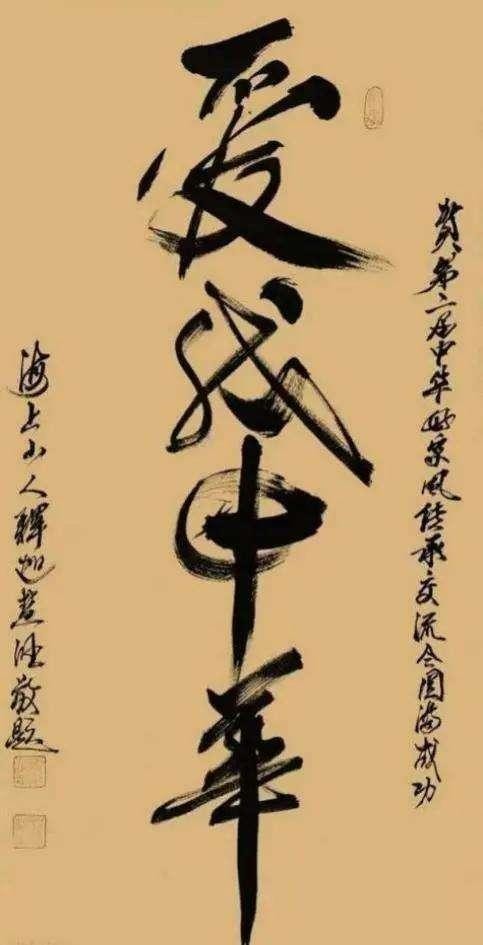 贺第二届中华好家风传承交流会圆满成功
爱我中華
海上山人敬题